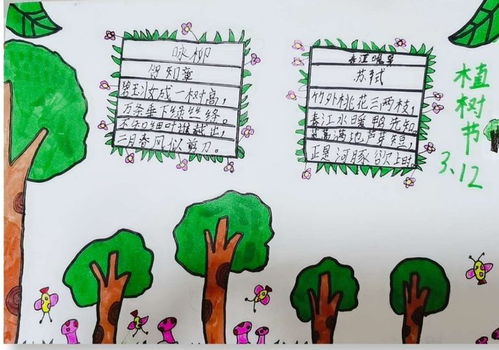 咏柳
贺知章
碧玉妆成一树高，
万条垂下绿丝绦。
不知细叶谁裁出，
二月春风似剪刀。
春江晚景
苏轼
竹外桃花三两枝，
春江水暖鸭先知。
蒌蒿满地芦芽短，
正是河豚欲上时。
植树节
3.12